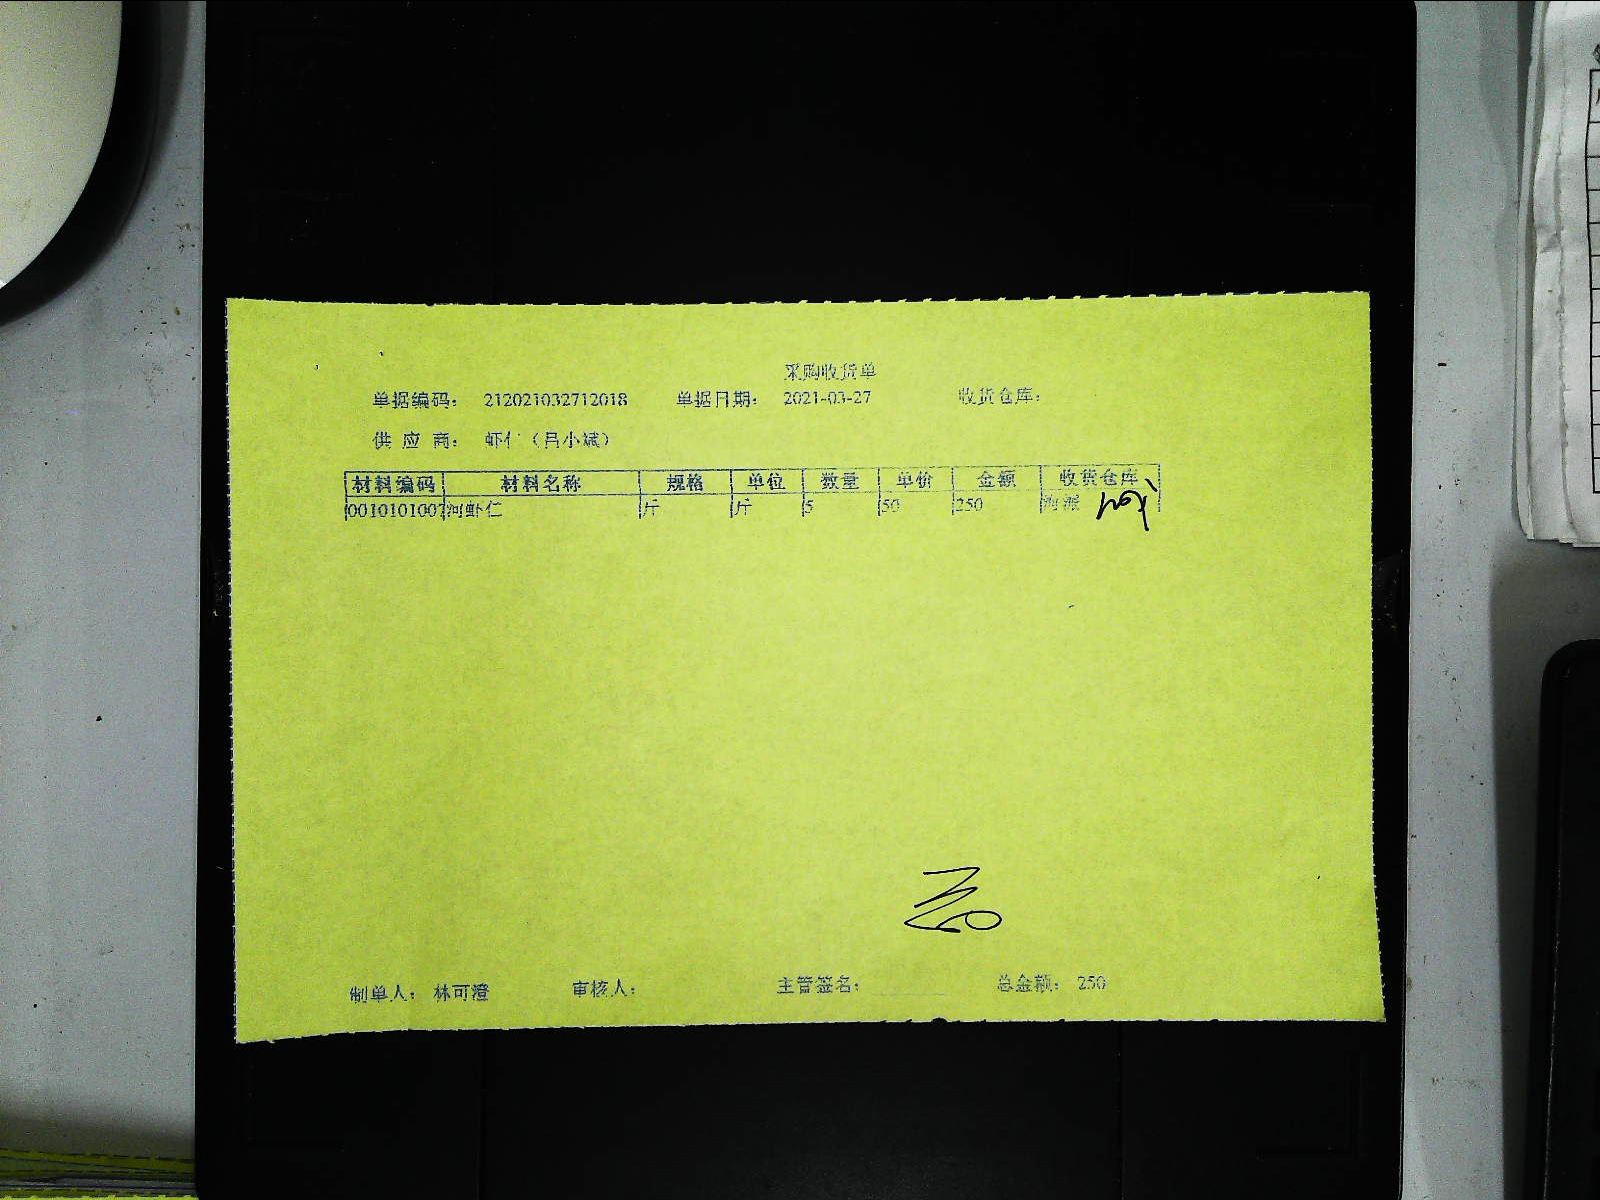 采购收货单
单据编码： 212021032712018 单据日期： 2021-03-27 收货仓库：
供 应 商： 虾仁（吕小斌）
材料编码 材料名称 规格 单位 数量 单价 金额 收货仓库
0010101007 河虾仁 斤 斤 5 50 250 海派
制单人： 林可澄 审核人： 主管签名： 总金额： 250